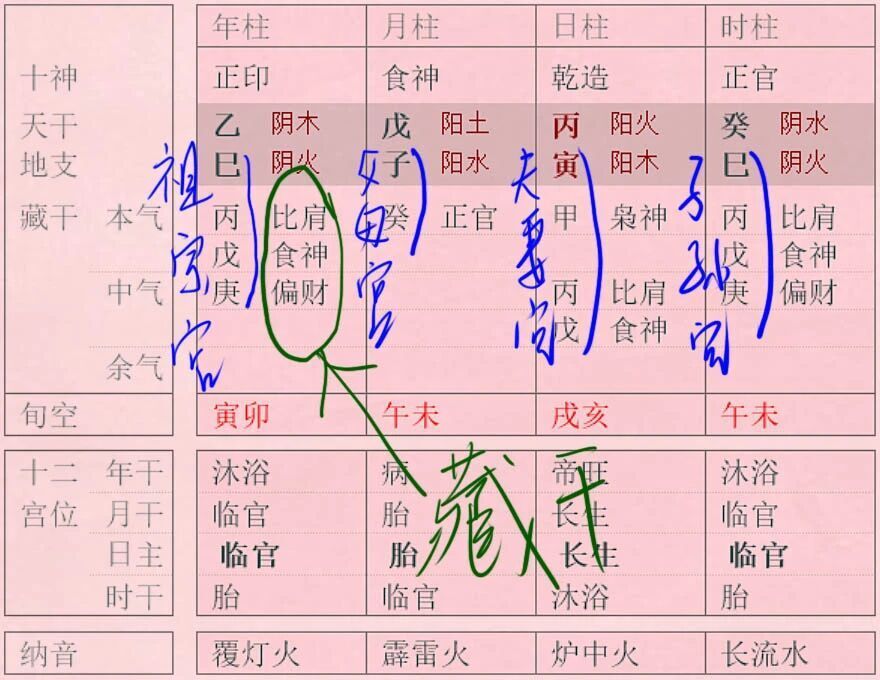 年柱 月柱 日柱 时柱
十神 正印 食神 乾造 正官
天干 乙 阴木 戊 阳土 丙 阳火 癸 阴水
地支 巳 阴火 子 阳水 寅 阳木 巳 阴火
藏干 本气 丙 比肩 癸 正官 甲 枭神 丙 比肩
戊 食神 戊 食神
中气 庚 偏财 丙 比肩 庚 偏财
戊 食神
余气
祖宗宫
父母宫
夫妻宫
子孙宫
旬空 寅卯 午未 戌亥 午未
藏干
十二 年干 沐浴 病 帝旺 沐浴
宫位 月干 临官 胎 长生 临官
日主 临官 胎 长生 临官
时干 胎 临官 沐浴 胎
纳音 覆灯火 霹雷火 炉中火 长流水